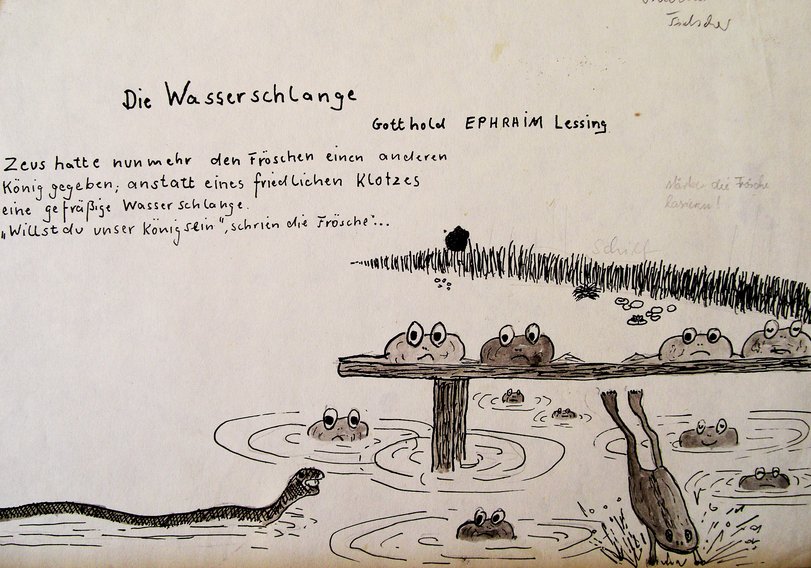 Tscher
Die Wasserschlange
Gotthold EPHRAIM Lessing
Zeus hatte nunmehr den Fröschen einen anderen
König gegeben; anstatt eines friedlichen Klotzes
eine gefräßige Wasserschlange.
„Willst du unser König sein", schrien die Frösche"...
die Frösche
lasieren!
Schilf